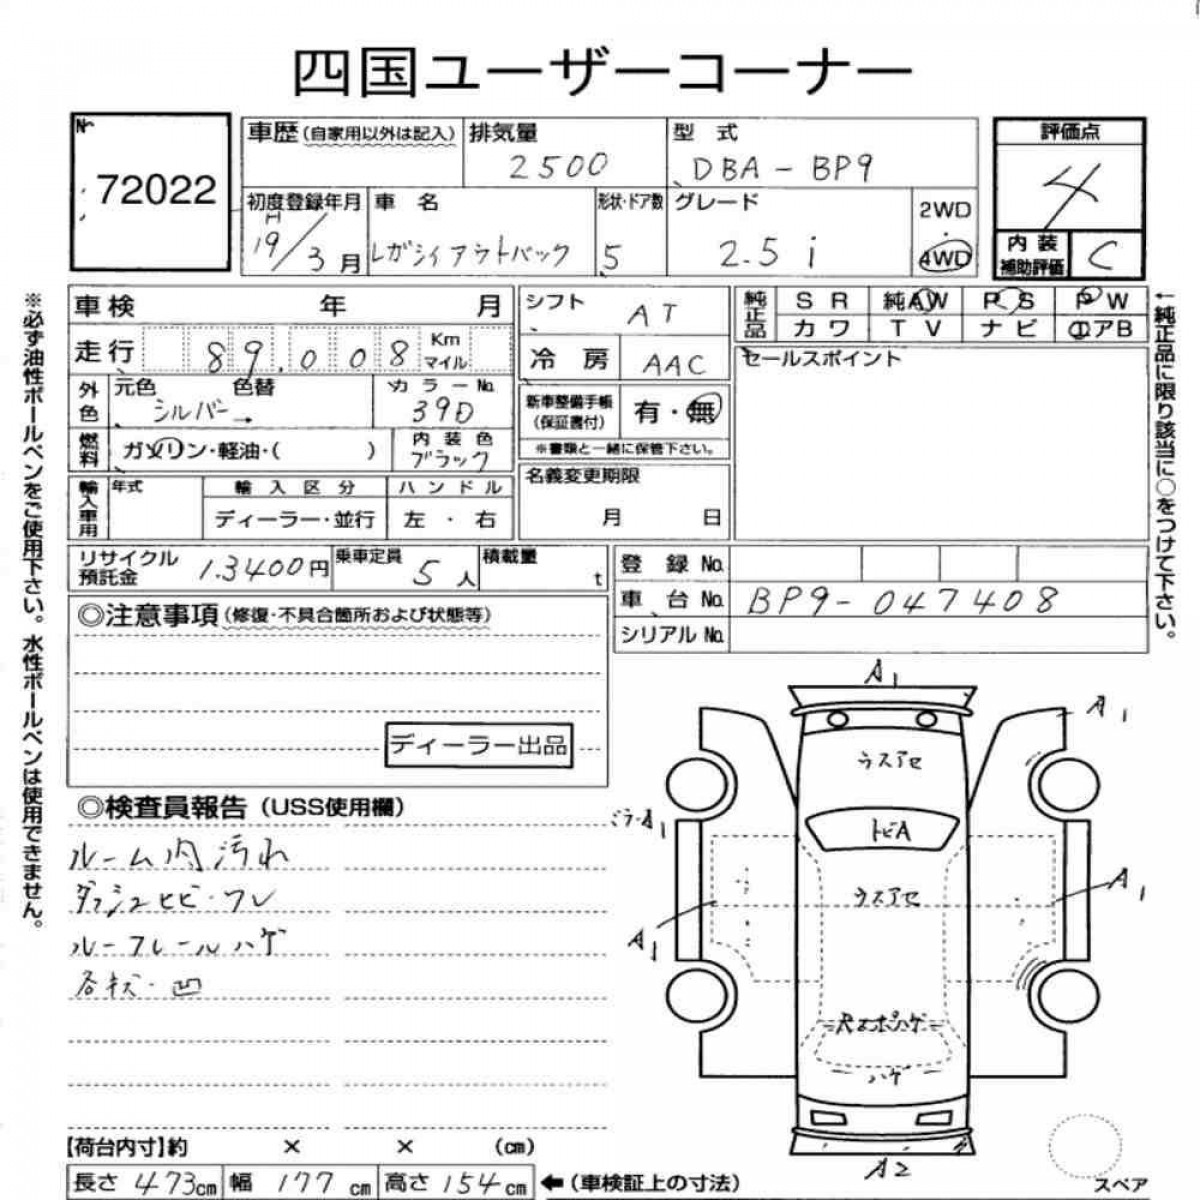 四国ユーザーコーナー
№ 72022
車歴(自家用以外は記入) 排気量 2500 型式 DBA-BP9
初度登録年月 H19/3月 車名 レガシィアウトバック 形状・ドア数 5 グレード 2.5i 2WD・4WD
評価点 4
内装補助評価 C
車検 年 月
走行 89,008 Km マイル
外色 元色 シルバー→ 色替 カラー№ 39D
燃料 ガソリン・軽油・( ) 内装色 ブラック
輸入車用 年式 輸入区分 ディーラー・並行 ハンドル 左・右
シフト AT
冷房 AAC
新車整備手帳(保証書付) 有・無
※書類と一緒に保管下さい。
名義変更期限 月 日
純正品 SR 純AW PS PW
カワ TV ナビ エアB
セールスポイント
リサイクル預託金 13400円 乗車定員 5人 積載量 t
登録 No.
車台 No. BP9-047408
シリアル No.
◎注意事項(修復・不具合箇所および状態等)
ディーラー出品
◎検査員報告(USS使用欄)
ルーム内汚れ
ダッシュヒビ・ワレ
ルーフレールハゲ
各キズ・凹
A1
A1
ウスアセ
トビA
A1
ウスアセ
A1
A1
ハゲ
A2
スペア
【荷台内寸】約 × × (cm)
長さ 473cm 幅 177cm 高さ 154cm ←(車検証上の寸法)
※必ず油性ボールペンをご使用下さい。水性ボールペンは使用できません。
←純正品に限り該当に○をつけて下さい。